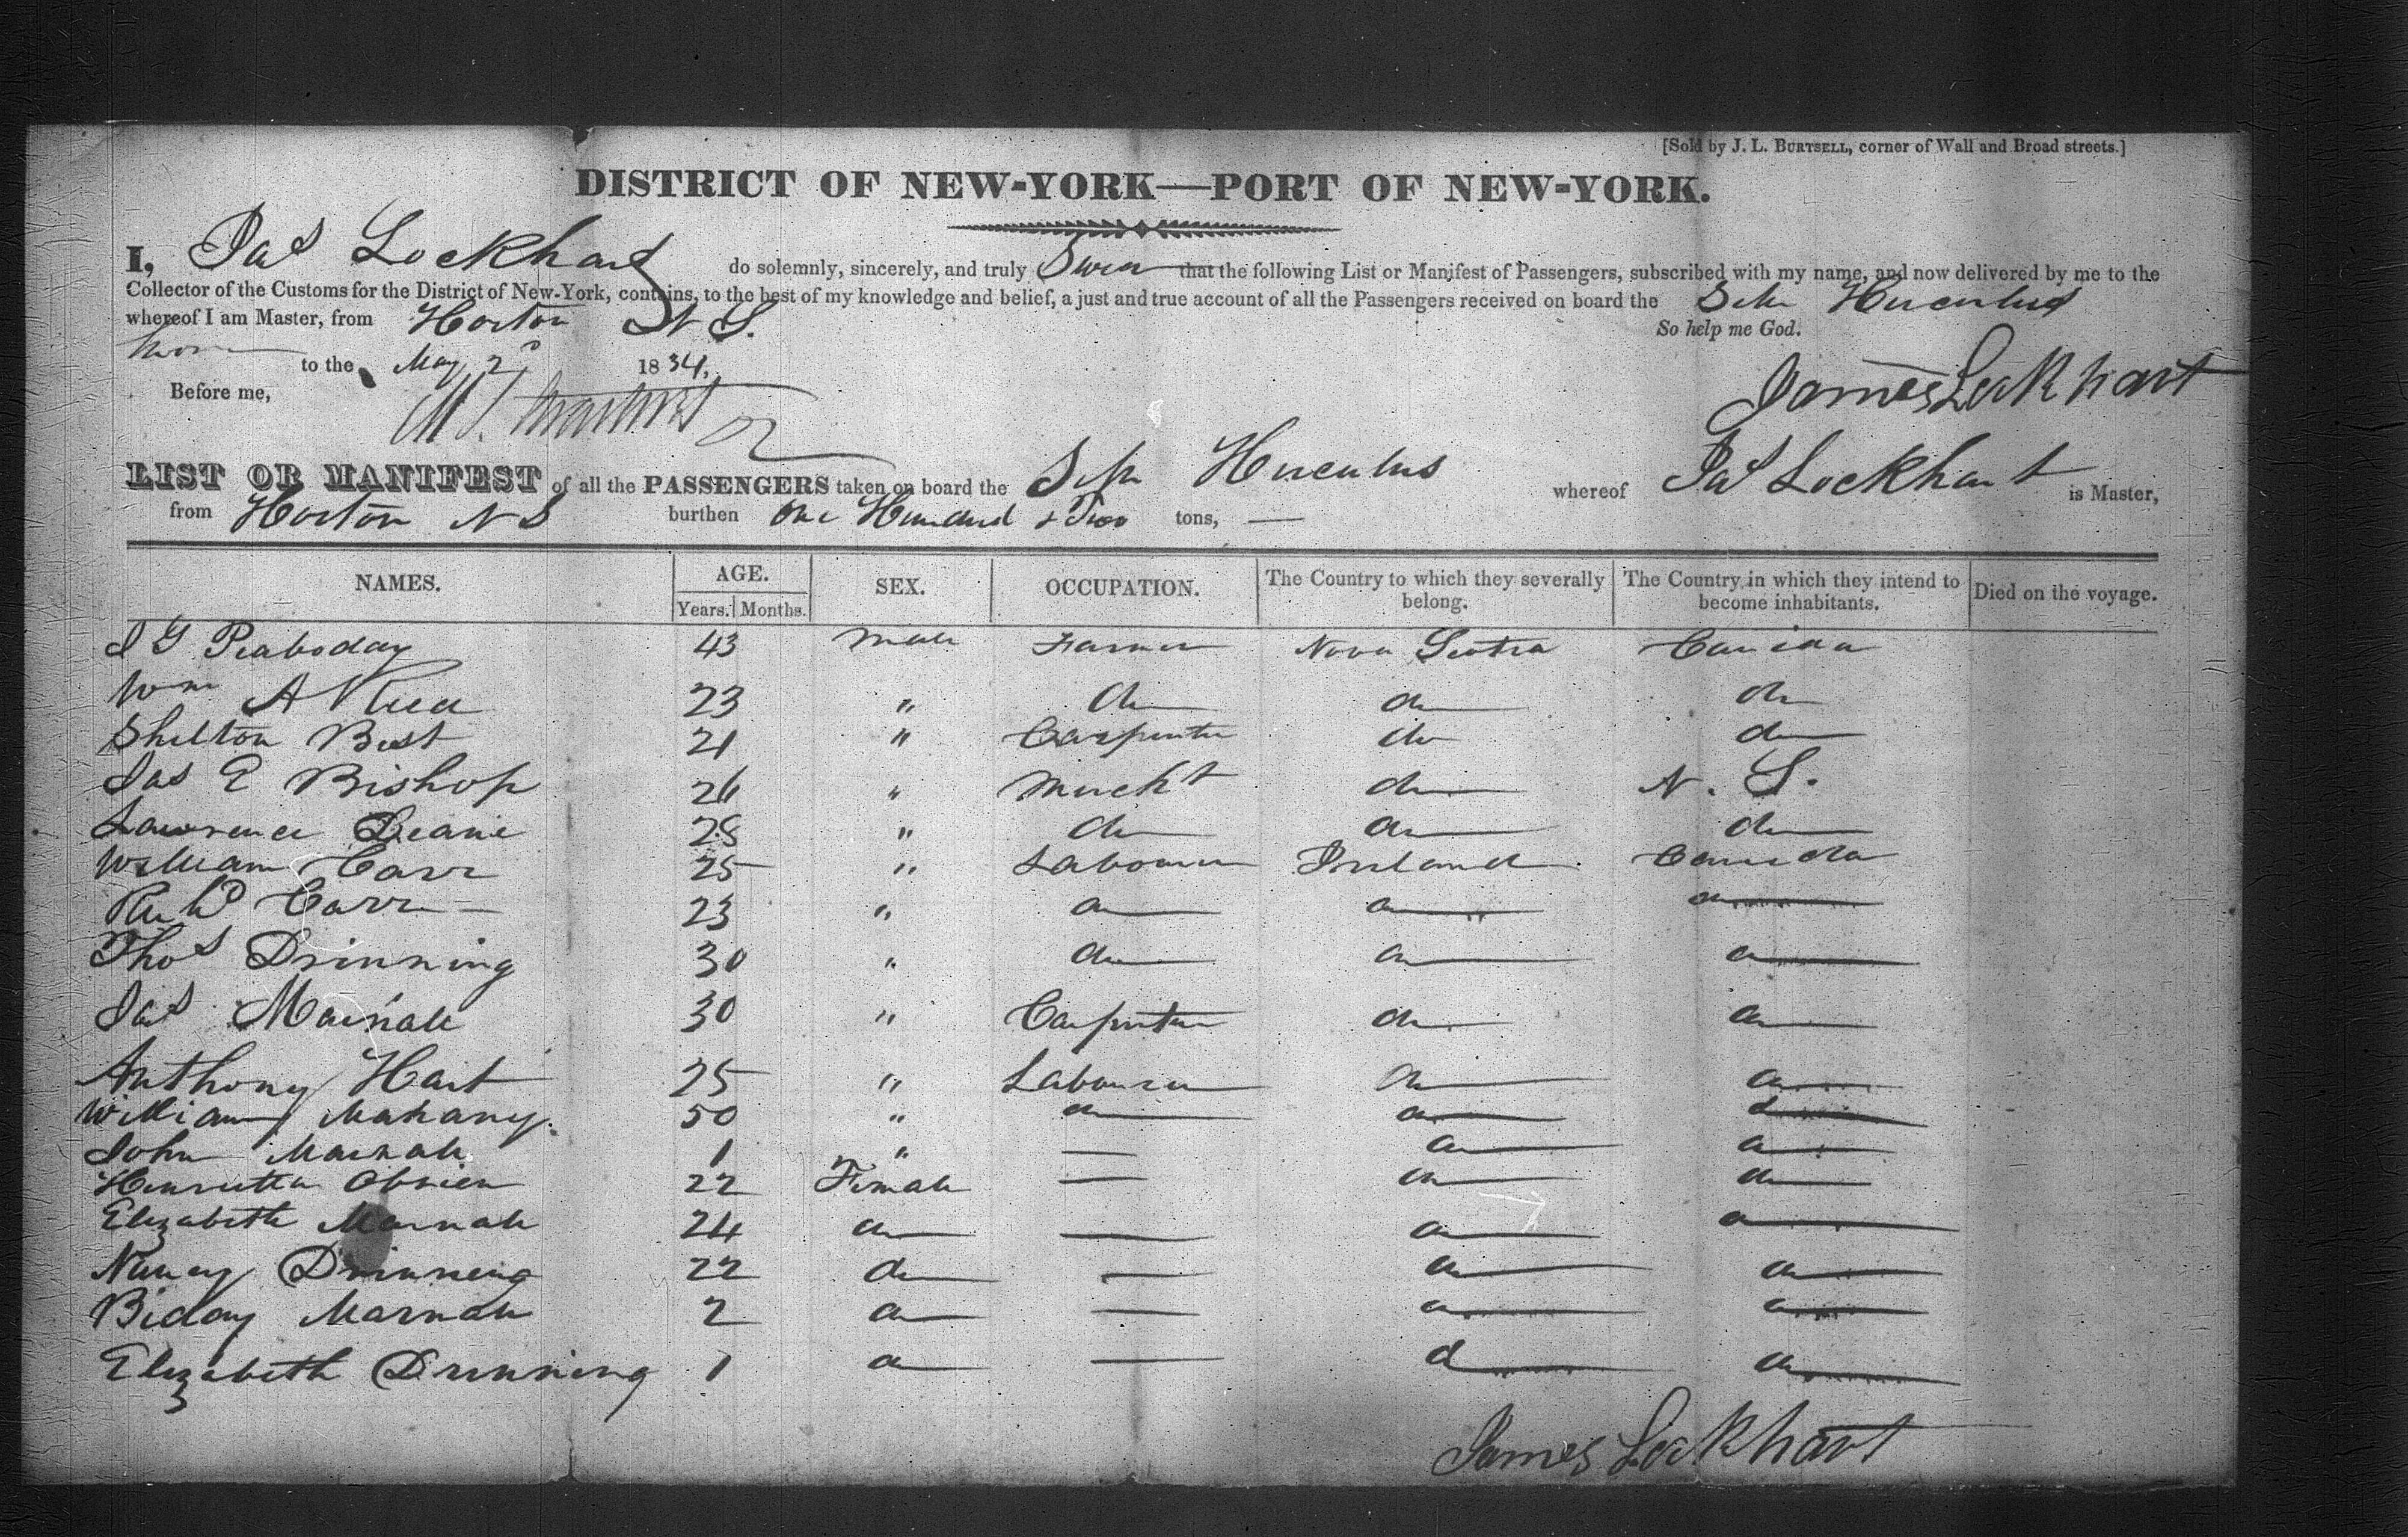 [Sold by J. L. BURTSELL, corner of Wall and Broad streets.]
DISTRICT OF NEW-YORK—PORT OF NEW-YORK.
I, Jas Lockhart do solemnly, sincerely, and truly Swear that the following List or Manifest of Passengers, subscribed with my name, and now delivered by me to the
Collector of the Customs for the District of New-York, contains, to the best of my knowledge and belief, a just and true account of all the Passengers received on board the Schr Herculus
whereof I am Master, from Horton N S.
So help me God.
Sworn to the May 2d 1834,
James Lockhart
Before me,
LIST OR MANIFEST of all the PASSENGERS taken on board the Schr Herculus whereof Jas Lockhart is Master,
from Horton N S burthen One Hundred & Two tons, —
NAMES. AGE. Years. Months. SEX. OCCUPATION. The Country to which they severally belong. The Country in which they intend to become inhabitants. Died on the voyage.
J G Peaboday 43 Male Farmer Nova Scotia Canida
Wm A 23 " do do do
Shelton Best 21 " Carpenter do do
Jas E Bishop 26 " Mercht do N. S.
Lawrence Deane 28 " do do do
William Carr 25 " Labourer Ireland Canida
Richd Carr 23 " do do do
Thos Drinning 30 " do do do
Jas Marnale 30 " Carpenter do do
Anthony Hart 25 " Labourer do do
William Mahany. 50 " do do do
John Marnale 1 " — do do
Henrietta Obrien 22 Female — do do
Elizabeth Marnale 24 do — do do
Nancy Drinning 22 do — do do
Biday Marnale 2 do — do do
Elizabeth Drinning 1 do — do do
James Lockhart